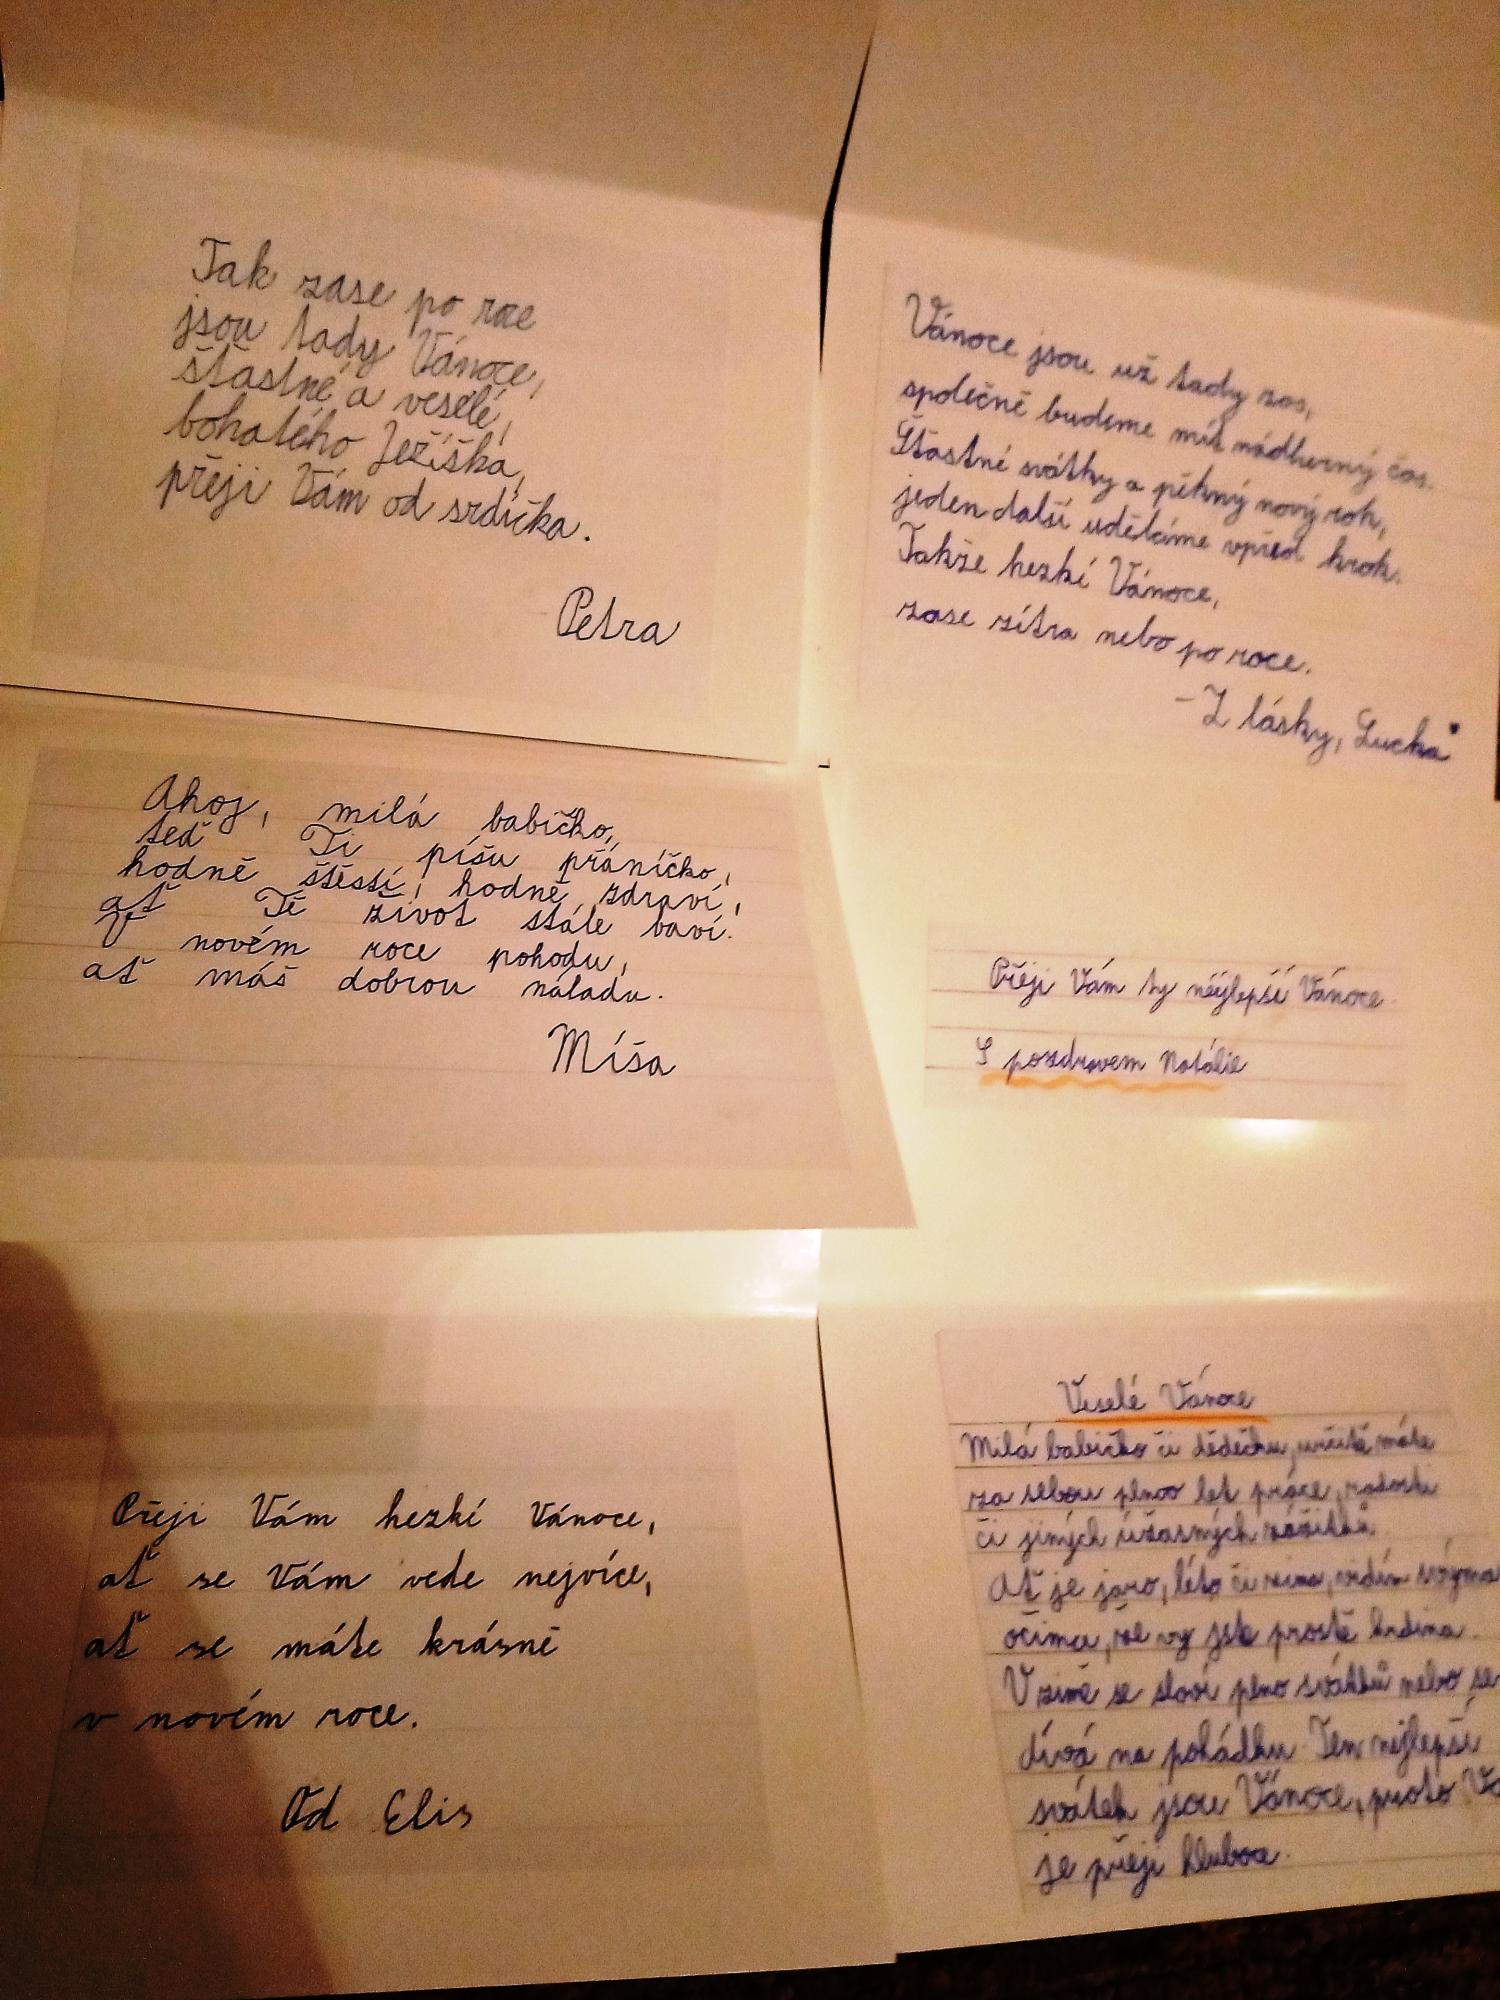 Tak zase po roce
jsou tady Vánoce,
šťastné a veselé,
bohatého Ježíška,
přeji Vám od srdíčka.
Petra
Vánoce jsou už tady zas,
společně budeme mít nádherný čas.
Šťastné svátky a pěkný nový rok,
jeden další uděláme vpřed krok.
Takže hezkí Vánoce,
zase zítra nebo po roce.
- Z lásky, Lucka
Ahoj, milá babičko,
teď Ti píšu přáníčko,
hodně štěstí, hodně zdraví,
ať Tě život stále baví.
V novém roce pohodu,
ať máš dobrou náladu.
Míša
Přeji Vám ty nejlepší Vánoce
S pozdravem Natálie
Přeji Vám hezkí Vánoce,
ať se Vám vede nejvíce,
ať se máte krásně
v novém roce.
Od Elis
Veselé Vánoce
Milá babičko či dědečku, určitě máte
za sebou plnoo let práce, radosti
či jiných úžasných zážitků.
Ať je jaro, léto či zima, vidím svýma
očima, že vy jste prostě hrdina.
V zimě se slaví plno svátků nebo se
dívá na pohádku. Ten nejlepší
svátek jsou Vánoce, proto
je přeji hluboce.